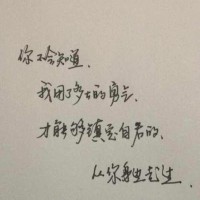 你不会知道，
我用了多大的勇气，
才能够镇定自若的，
从你身边走过。